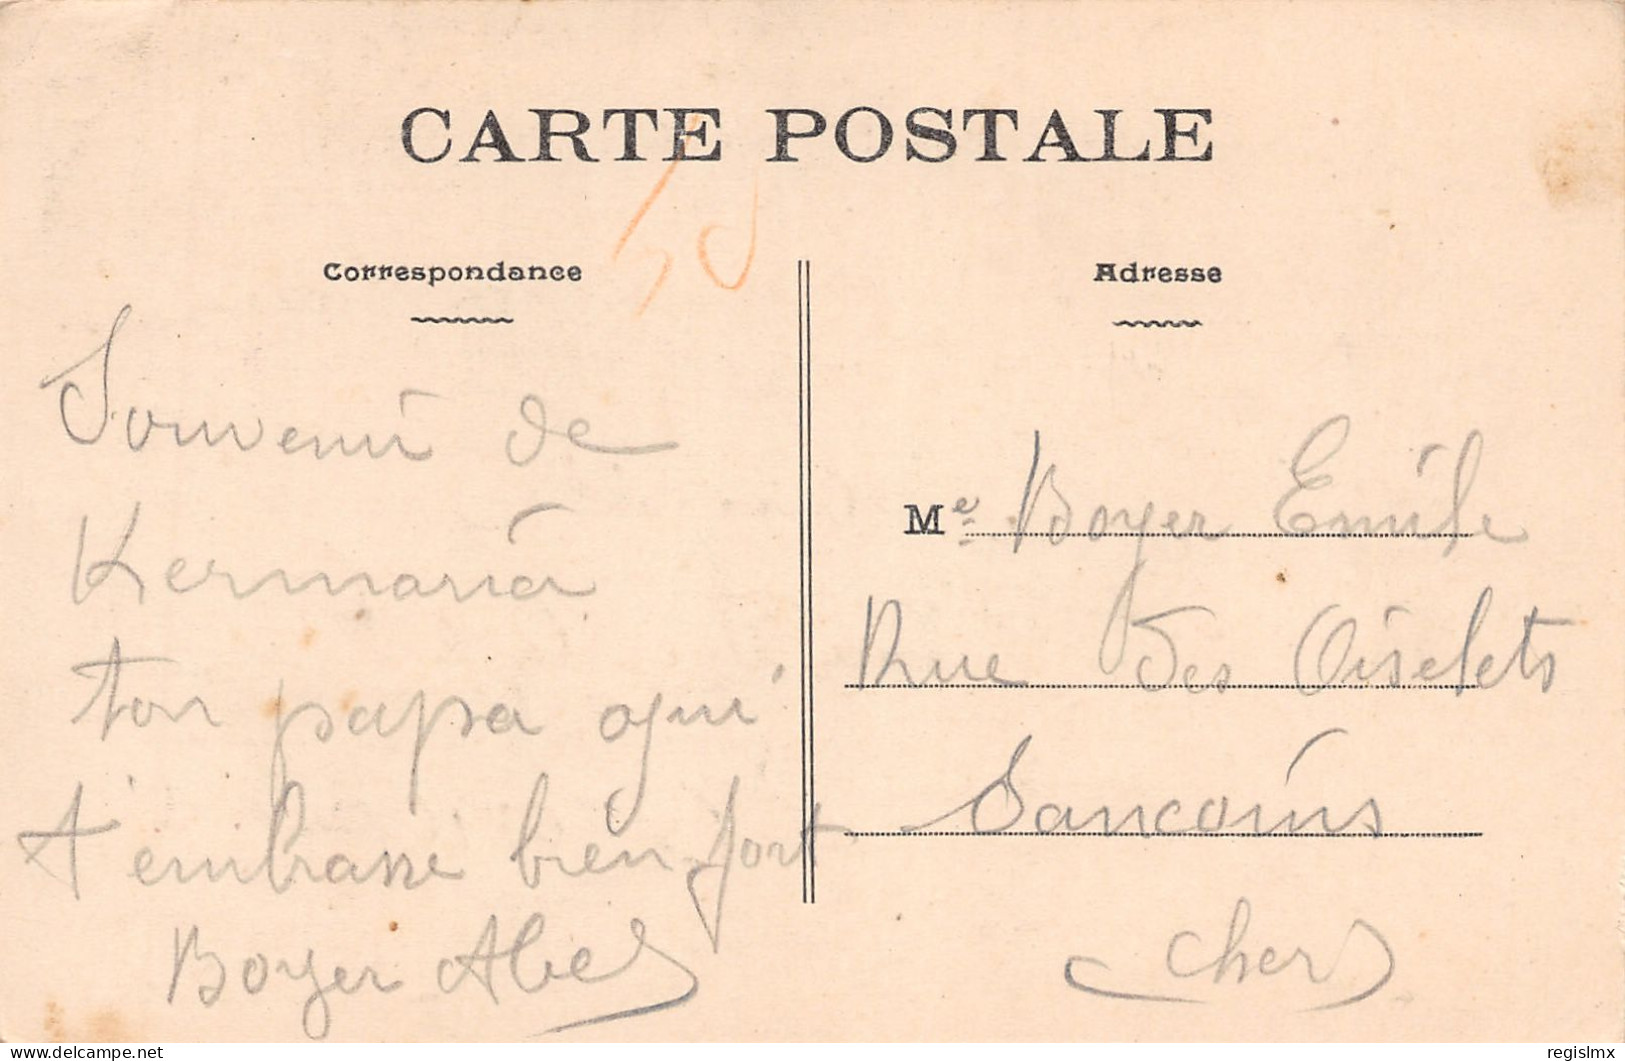 CARTE POSTALE
Correspondance
Souvenir de
Kermaria
ton papa qui
t'embrasse bien fort
Boyer Abel
Adresse
Me Boyer Emile
Rue des Oiselets
Sancoins
Cher
delcampe.net
regislmx